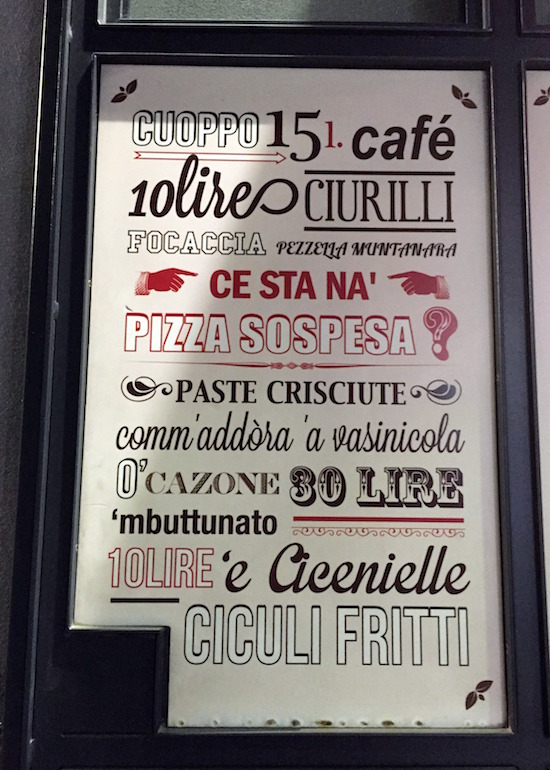 CUOPPO 15l. café
10lire CIURILLI
FOCACCIA PEZZELLA MUNTANARA
CE STA NA'
PIZZA SOSPESA ?
PASTE CRISCIUTE
comm'addòra 'a vasinicola
O' CAZONE 30 LIRE
'mbuttunato
10LIRE 'e Cicenielle
CICULI FRITTI